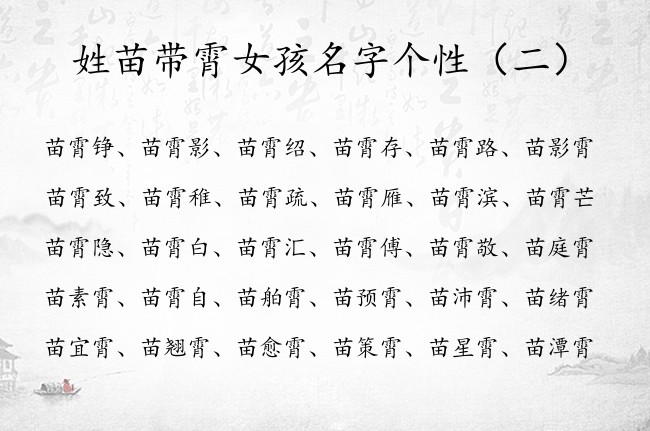 姓苗带霄女孩名字个性（二）
苗霄铮、苗霄影、苗霄绍、苗霄存、苗霄路、苗影霄
苗霄致、苗霄稚、苗霄疏、苗霄雁、苗霄滨、苗霄芒
苗霄隐、苗霄白、苗霄汇、苗霄傅、苗霄敬、苗庭霄
苗素霄、苗霄自、苗舶霄、苗预霄、苗沛霄、苗绪霄
苗宜霄、苗翘霄、苗愈霄、苗策霄、苗星霄、苗潭霄